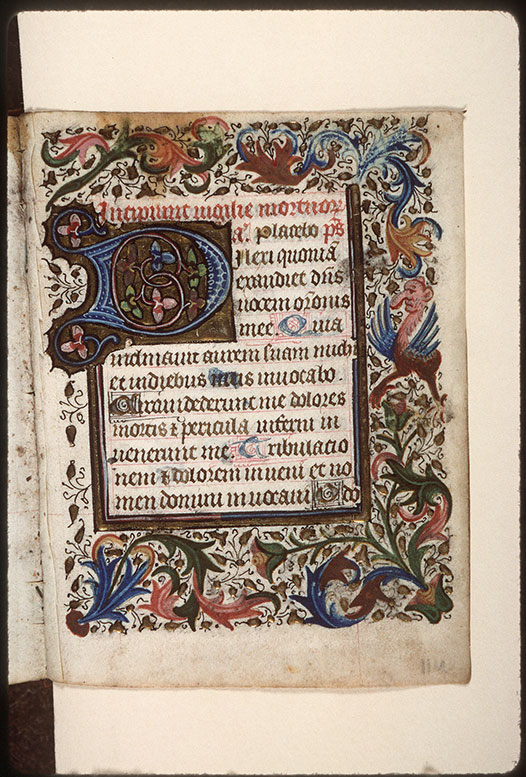 Incipiunt vigilie mortuor.
a. Placebo ps
Dilexi quoniā
exaudiet dn̄s
vocem orōnis
mee. Quia
inclinavit aurem suam michi
et in diebus meis invocabo.
Circumdederunt me dolores
mortis ⁊ pericula inferni in
venerunt me. Tribulacio
nem ⁊ dolorem inveni et no
men domini invocavi O do